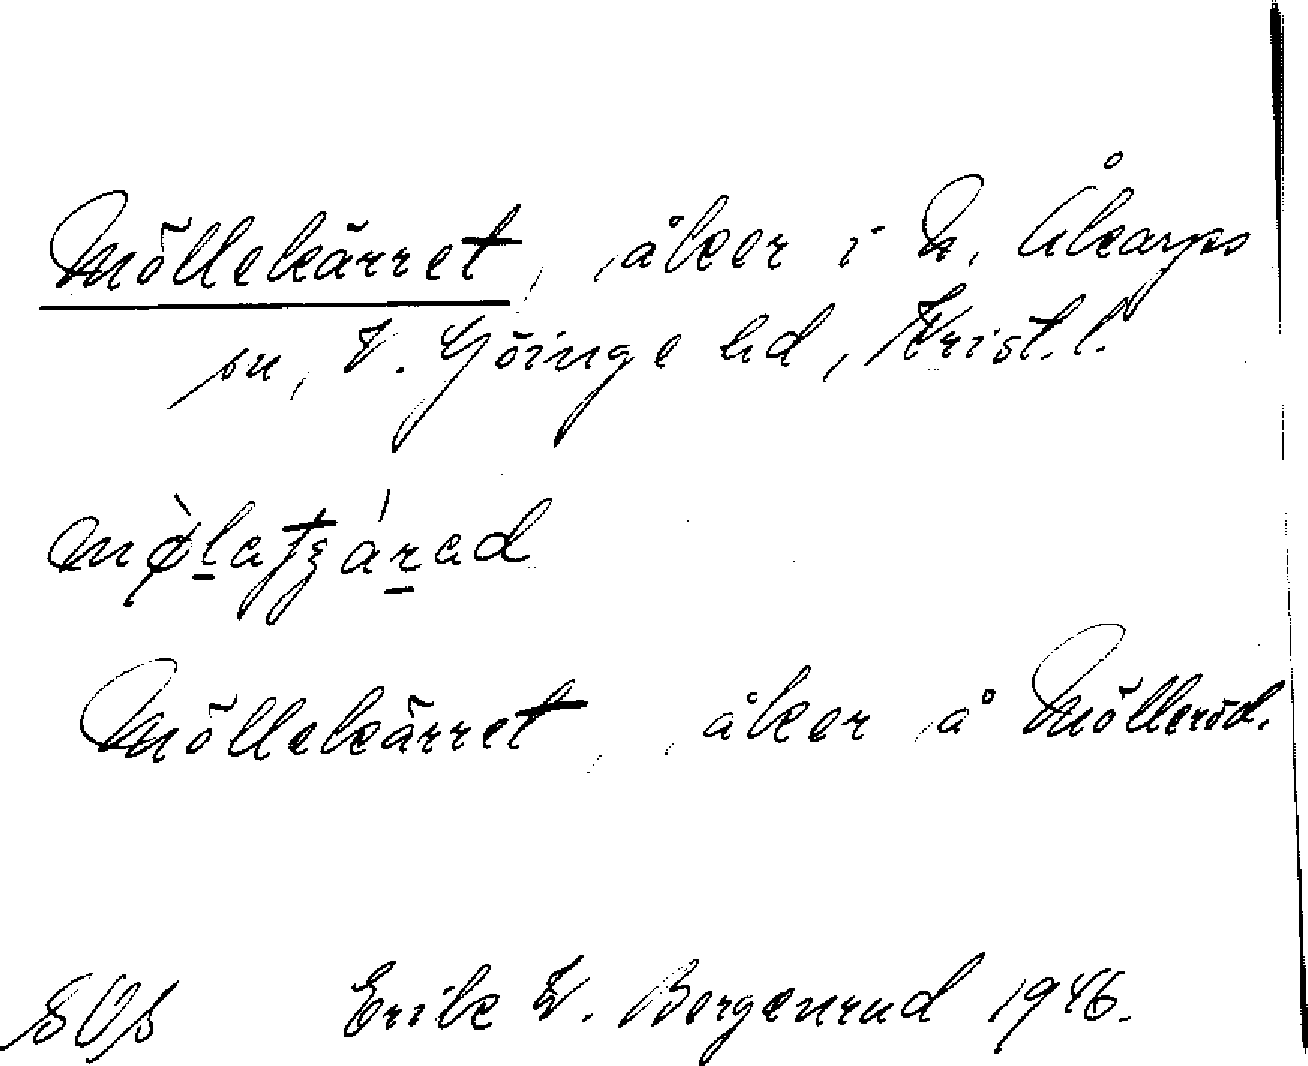 Möllekärret, åker i N. Åkarps
sn, V. Göinge hd, Krist. l.
Möllekärret, åker å Mölleröd.
Erik V. Borgenrud 1946.